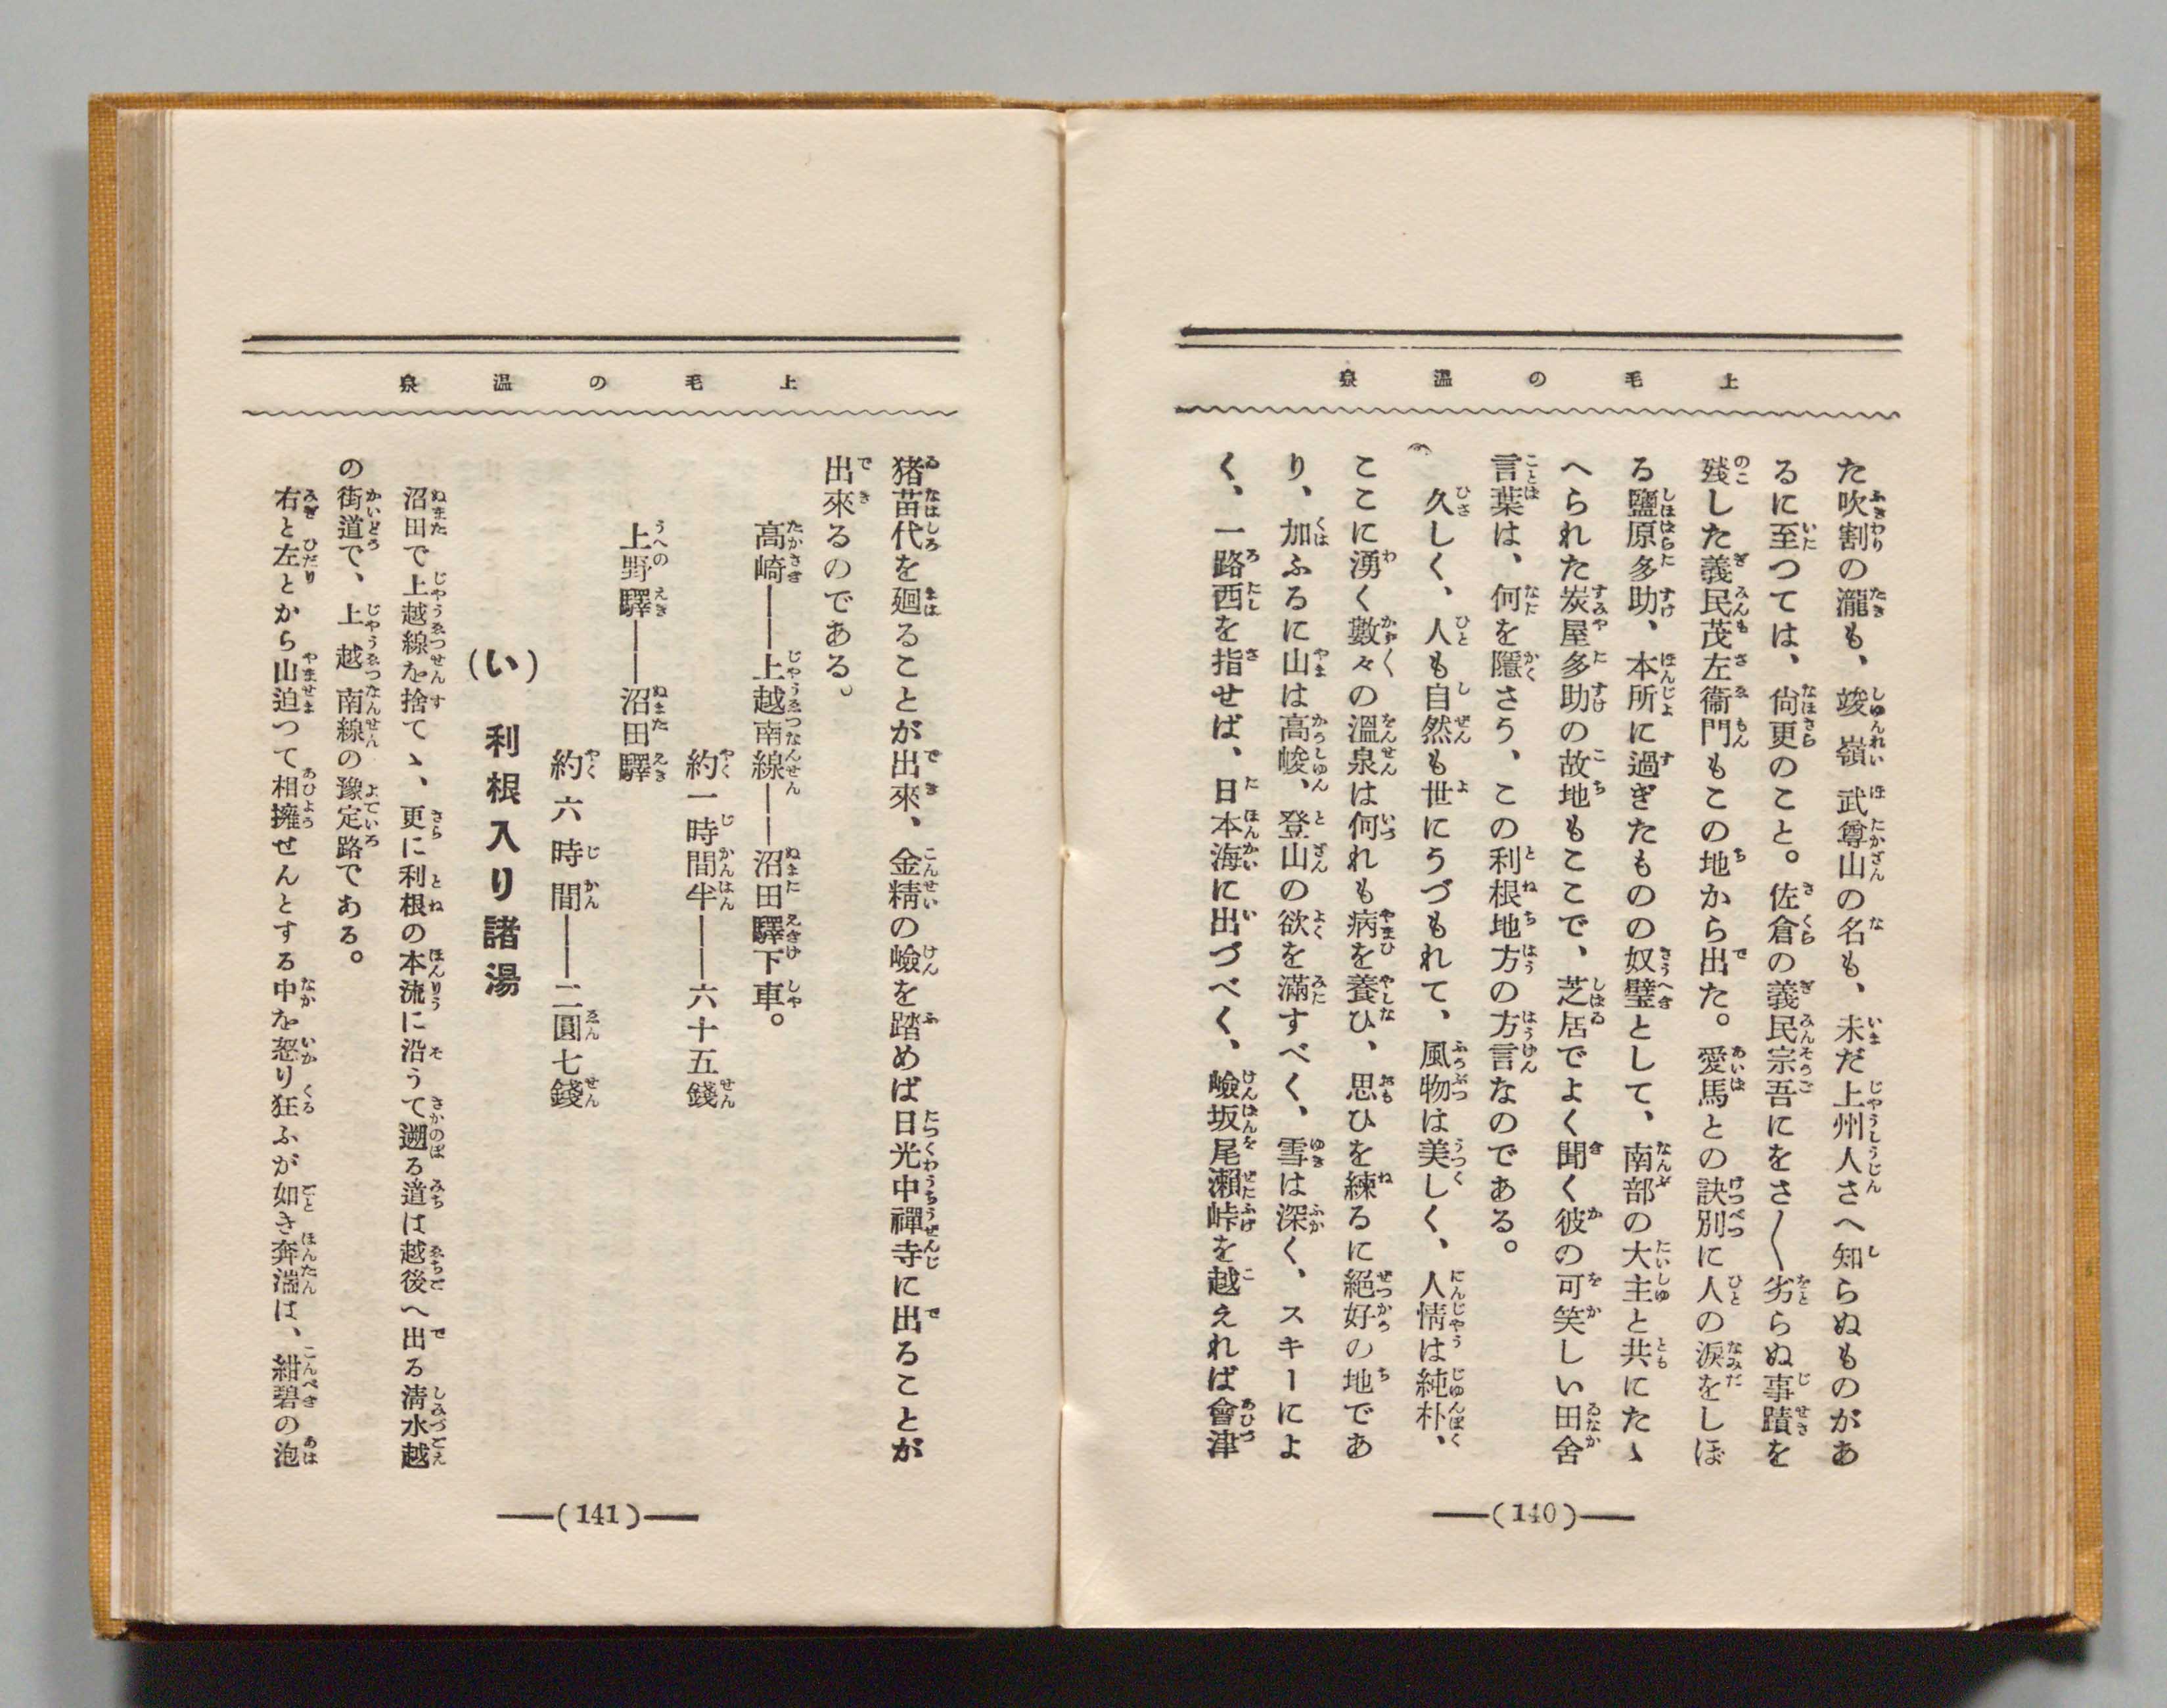 上毛の温泉
た吹割の瀧も、竣嶺武尊山の名も、未だ上州人さへ知らぬものがあ
るに至つては、尙更のこと。佐倉の義民宗吾にをさ〱劣らぬ事蹟を
殘した義民茂左衞門もこの地から出た。愛馬との訣別に人の淚をしぼ
る鹽原多助、本所に過ぎたものの奴璧として、南部の大主と共にたゝ
へられた炭屋多助の故地もここで、芝居でよく聞く彼の可笑しい田舍
言葉は、何を隱さう、この利根地方の方言なのである。
久しく、人も自然も世にうづもれて、風物は美しく、人情は純朴、
ここに湧く數々の溫泉は何れも病を養ひ、思ひを練るに絕好の地であ
り、加ふるに山は高峻、登山の欲を滿すべく、雪は深く、スキーによ
く、一路西を指せば、日本海に出づべく、嶮坂尾瀨峠を越えれば會津
(140)
上毛の温泉
猪苗代を廻ることが出來、金精の嶮を踏めば日光中禪寺に出ることが
出來るのである。
高崎――上越南線――沼田驛下車。
約一時間半――六十五錢
上野驛――沼田驛
約六時間――二圓七錢
(い) 利根入り諸湯
沼田で上越線を捨てゝ、更に利根の本流に沿うて遡る道は越後へ出る淸水越
の街道で、上越南線の豫定路である。
右と左とから山迫つて相擁せんとする中を怒り狂ふが如き奔湍は、紺碧の泡
(141)